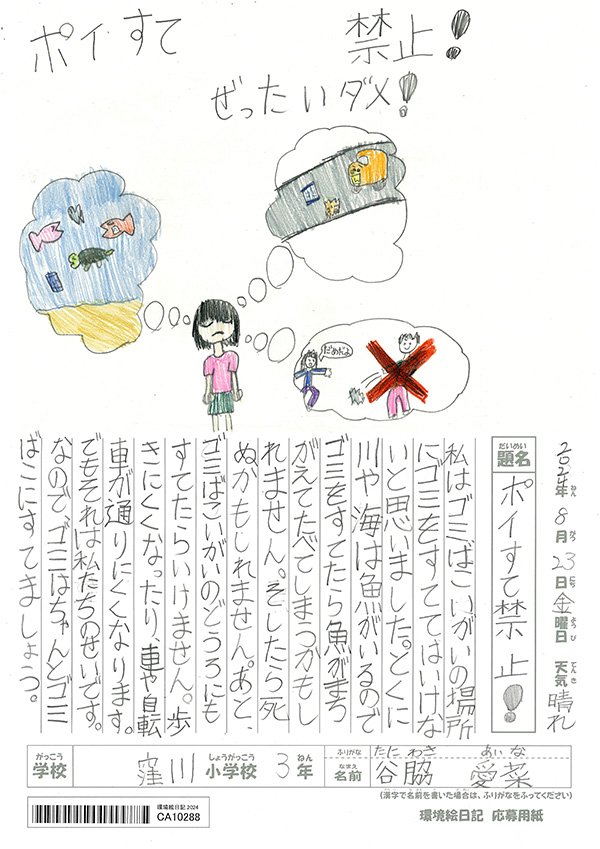 ポイすて 禁止!
ぜったいダメ!
だめだよ
2024年 8月 23日 金曜日 天気 晴れ
ねん がつ にち ようび てんき
だいめい
題名
ポイすて禁止!
私はゴミばこいがいの場所
にゴミをすててはいけな
いと思いました。とくに
川や海は魚がいるので
ゴミをすてたら魚がまち
がえてたべてしまうかもし
れません。そしたら死
ぬかもしれません。あと、
ゴミばこいがいのどうろにも
すてたらいけません。歩
きにくくなったり、車や自転
車が通りにくくなります。
でもそれは私たちのせいです。
なので、ゴミはちゃんとゴミ
ばこにすてましょう。
がっこう しょうがっこう ねん
学校 窪川 小学校 3年
ふりがな たにわき あいな
なまえ
名前 谷脇 愛菜
(漢字で名前を書いた場合は、ふりがなをふってください)
環境絵日記 2024
CA10288
環境絵日記 応募用紙